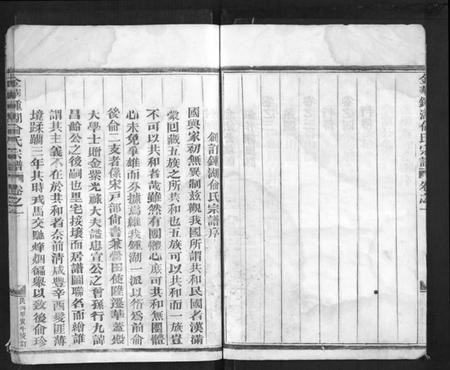 創訂鍾湖俞氏宗譜序
國與家初無異制茲觀我國所謂共和民國者漢滿
蒙回藏五族之所共和也五族可以共和而一族豈
不可以共和者哉雖然有團體心庶可共和無團體
心未免羣雄而外據焉維我鍾湖一派以
後俞二支者係宋戸部尚書兼
大學士贈金紫光祿大夫諡忠宣公之曾孫行九諱
昌齡公之後嗣也里宅接壤而居譜圖聯名而繪誰
謂共主義不在於共和者奈前清咸豐辛酉髮匪薄
境蹂躪三年其時戎馬交馳烽烟徧舉以致後俞珍
金華鍾湖俞氏宗譜
卷之一